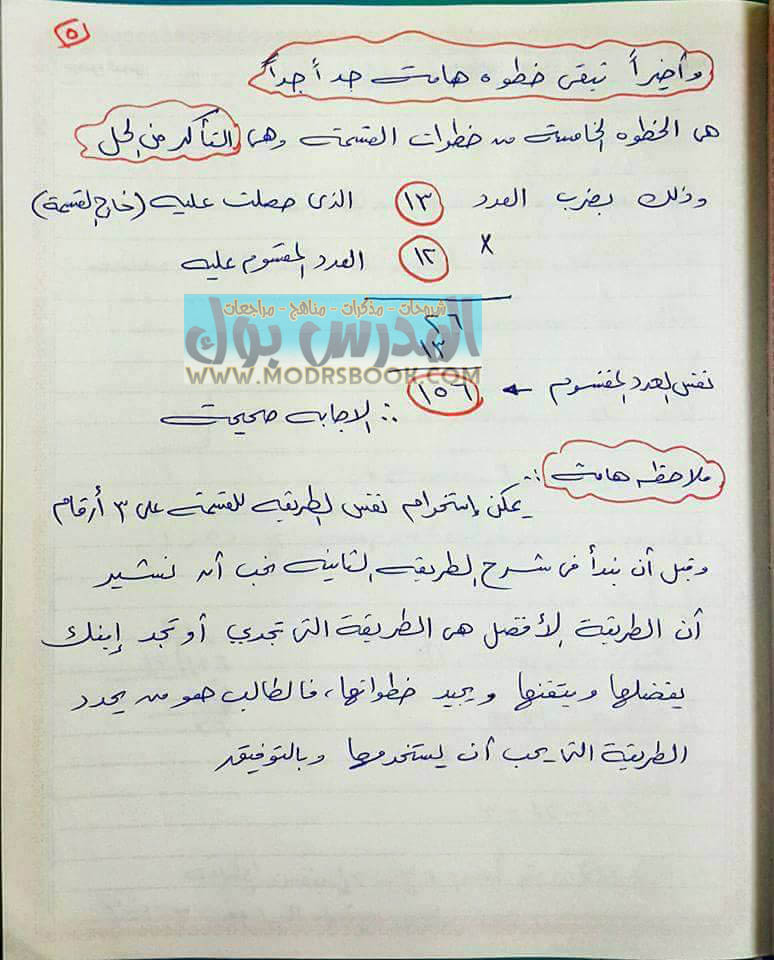 ٥
وأخيراً تبقى خطوه هامة جداً جداً
هى الخطوه الخامسة من خطوات القسمة وهى التأكد من الحل
وذلك بضرب العدد ١٣ الذى حصلت عليه (خارج القسمة)
× ١٢ العدد المقسوم عليه
شروحات - مذكرات - مناهج - مراجعات
المدرس بوك
WWW.MODRSBOOK.COM
٢٦
١٣
نفس العدد المقسوم ← ١٥٦
∴ الاجابه صحيحة
ملاحظه هامة :
يمكن إستخدام نفس الطريقه للقسمة على ٣ أرقام
وقبل أن نبدأ فى شرح الطريقه الثانيه نحب أن نشير
أن الطريقة الأفضل هى الطريقة التى تجدي أو تجد إبنك
يفضلها ويتقنها ويجيد خطواتها، فالطالب هو من يحدد
الطريقة التى يحب أن يستخدمها وبالتوفيق